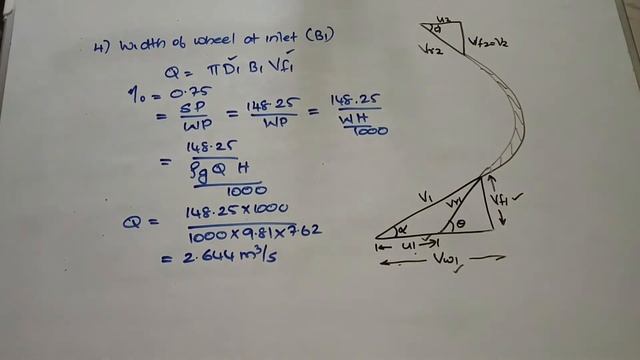 4) Width of wheel at inlet (B1)
Q = πD1 B1 Vf1
η0 = 0.75
= SP/WP = 148.25/WP = 148.25/(WH/1000)
= 148.25/(ρgQH/1000)
Q = 148.25×1000/(1000×9.81×7.62)
= 2.644 m³/s
u2
φ
Vr2
Vf2=V2
V1
Vr1
Vf1
α
θ
u1
Vw1